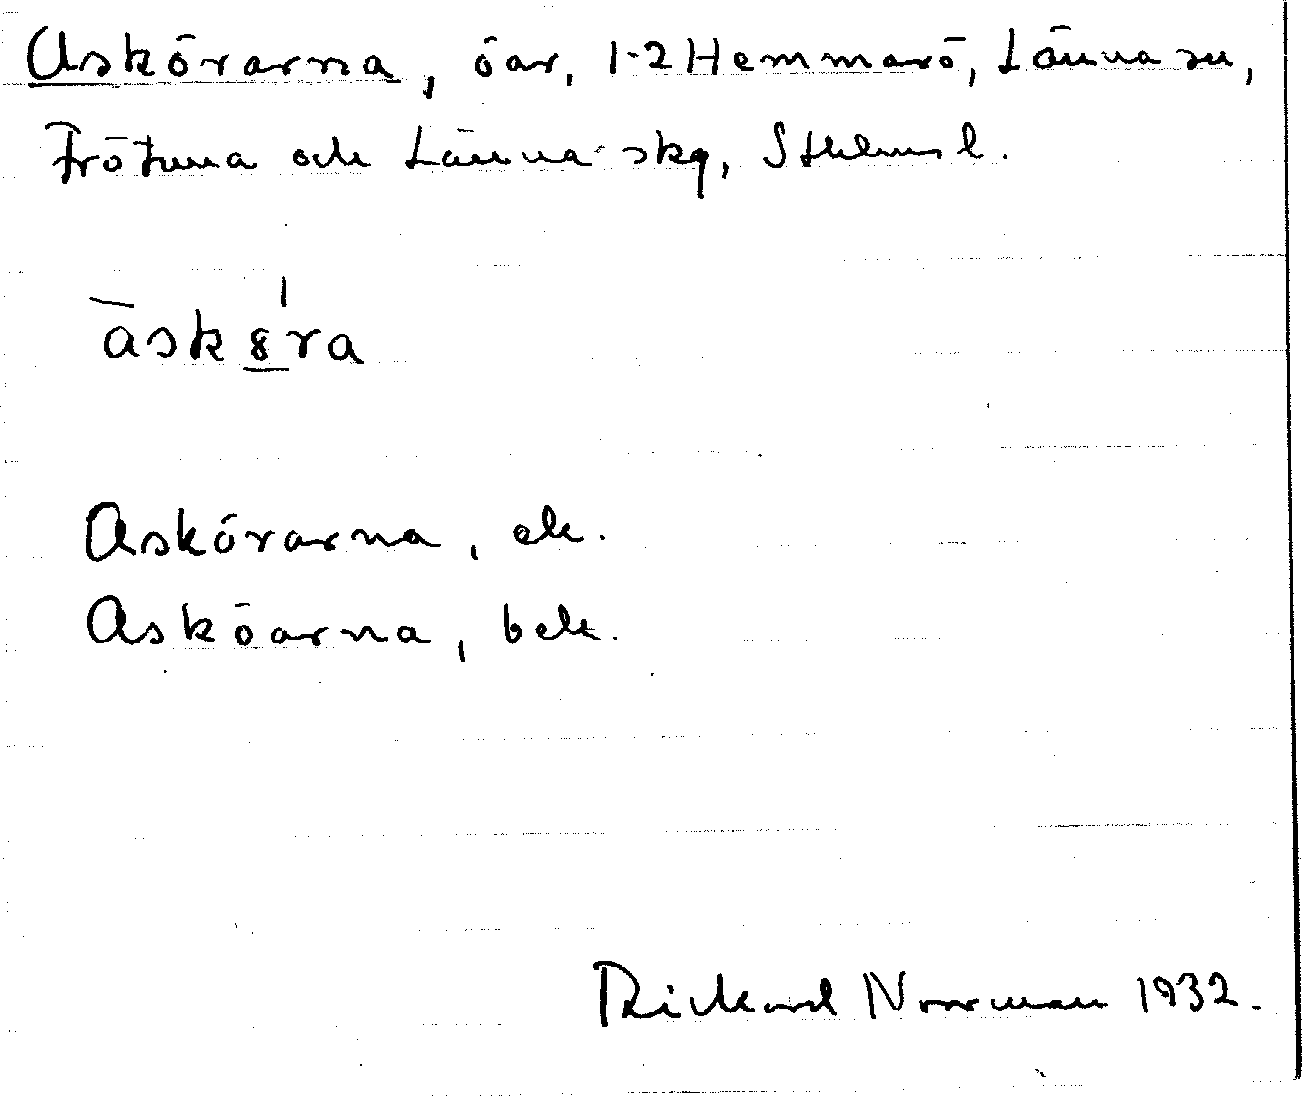 Askörarna, öar, 1-2 Hemmarö, Länna sn,
Frötuna och Länna skg, Sthlms l.
ask8ra
Askörarna, ek.
Asköarna, bek.
Rickard Norrman 1932.